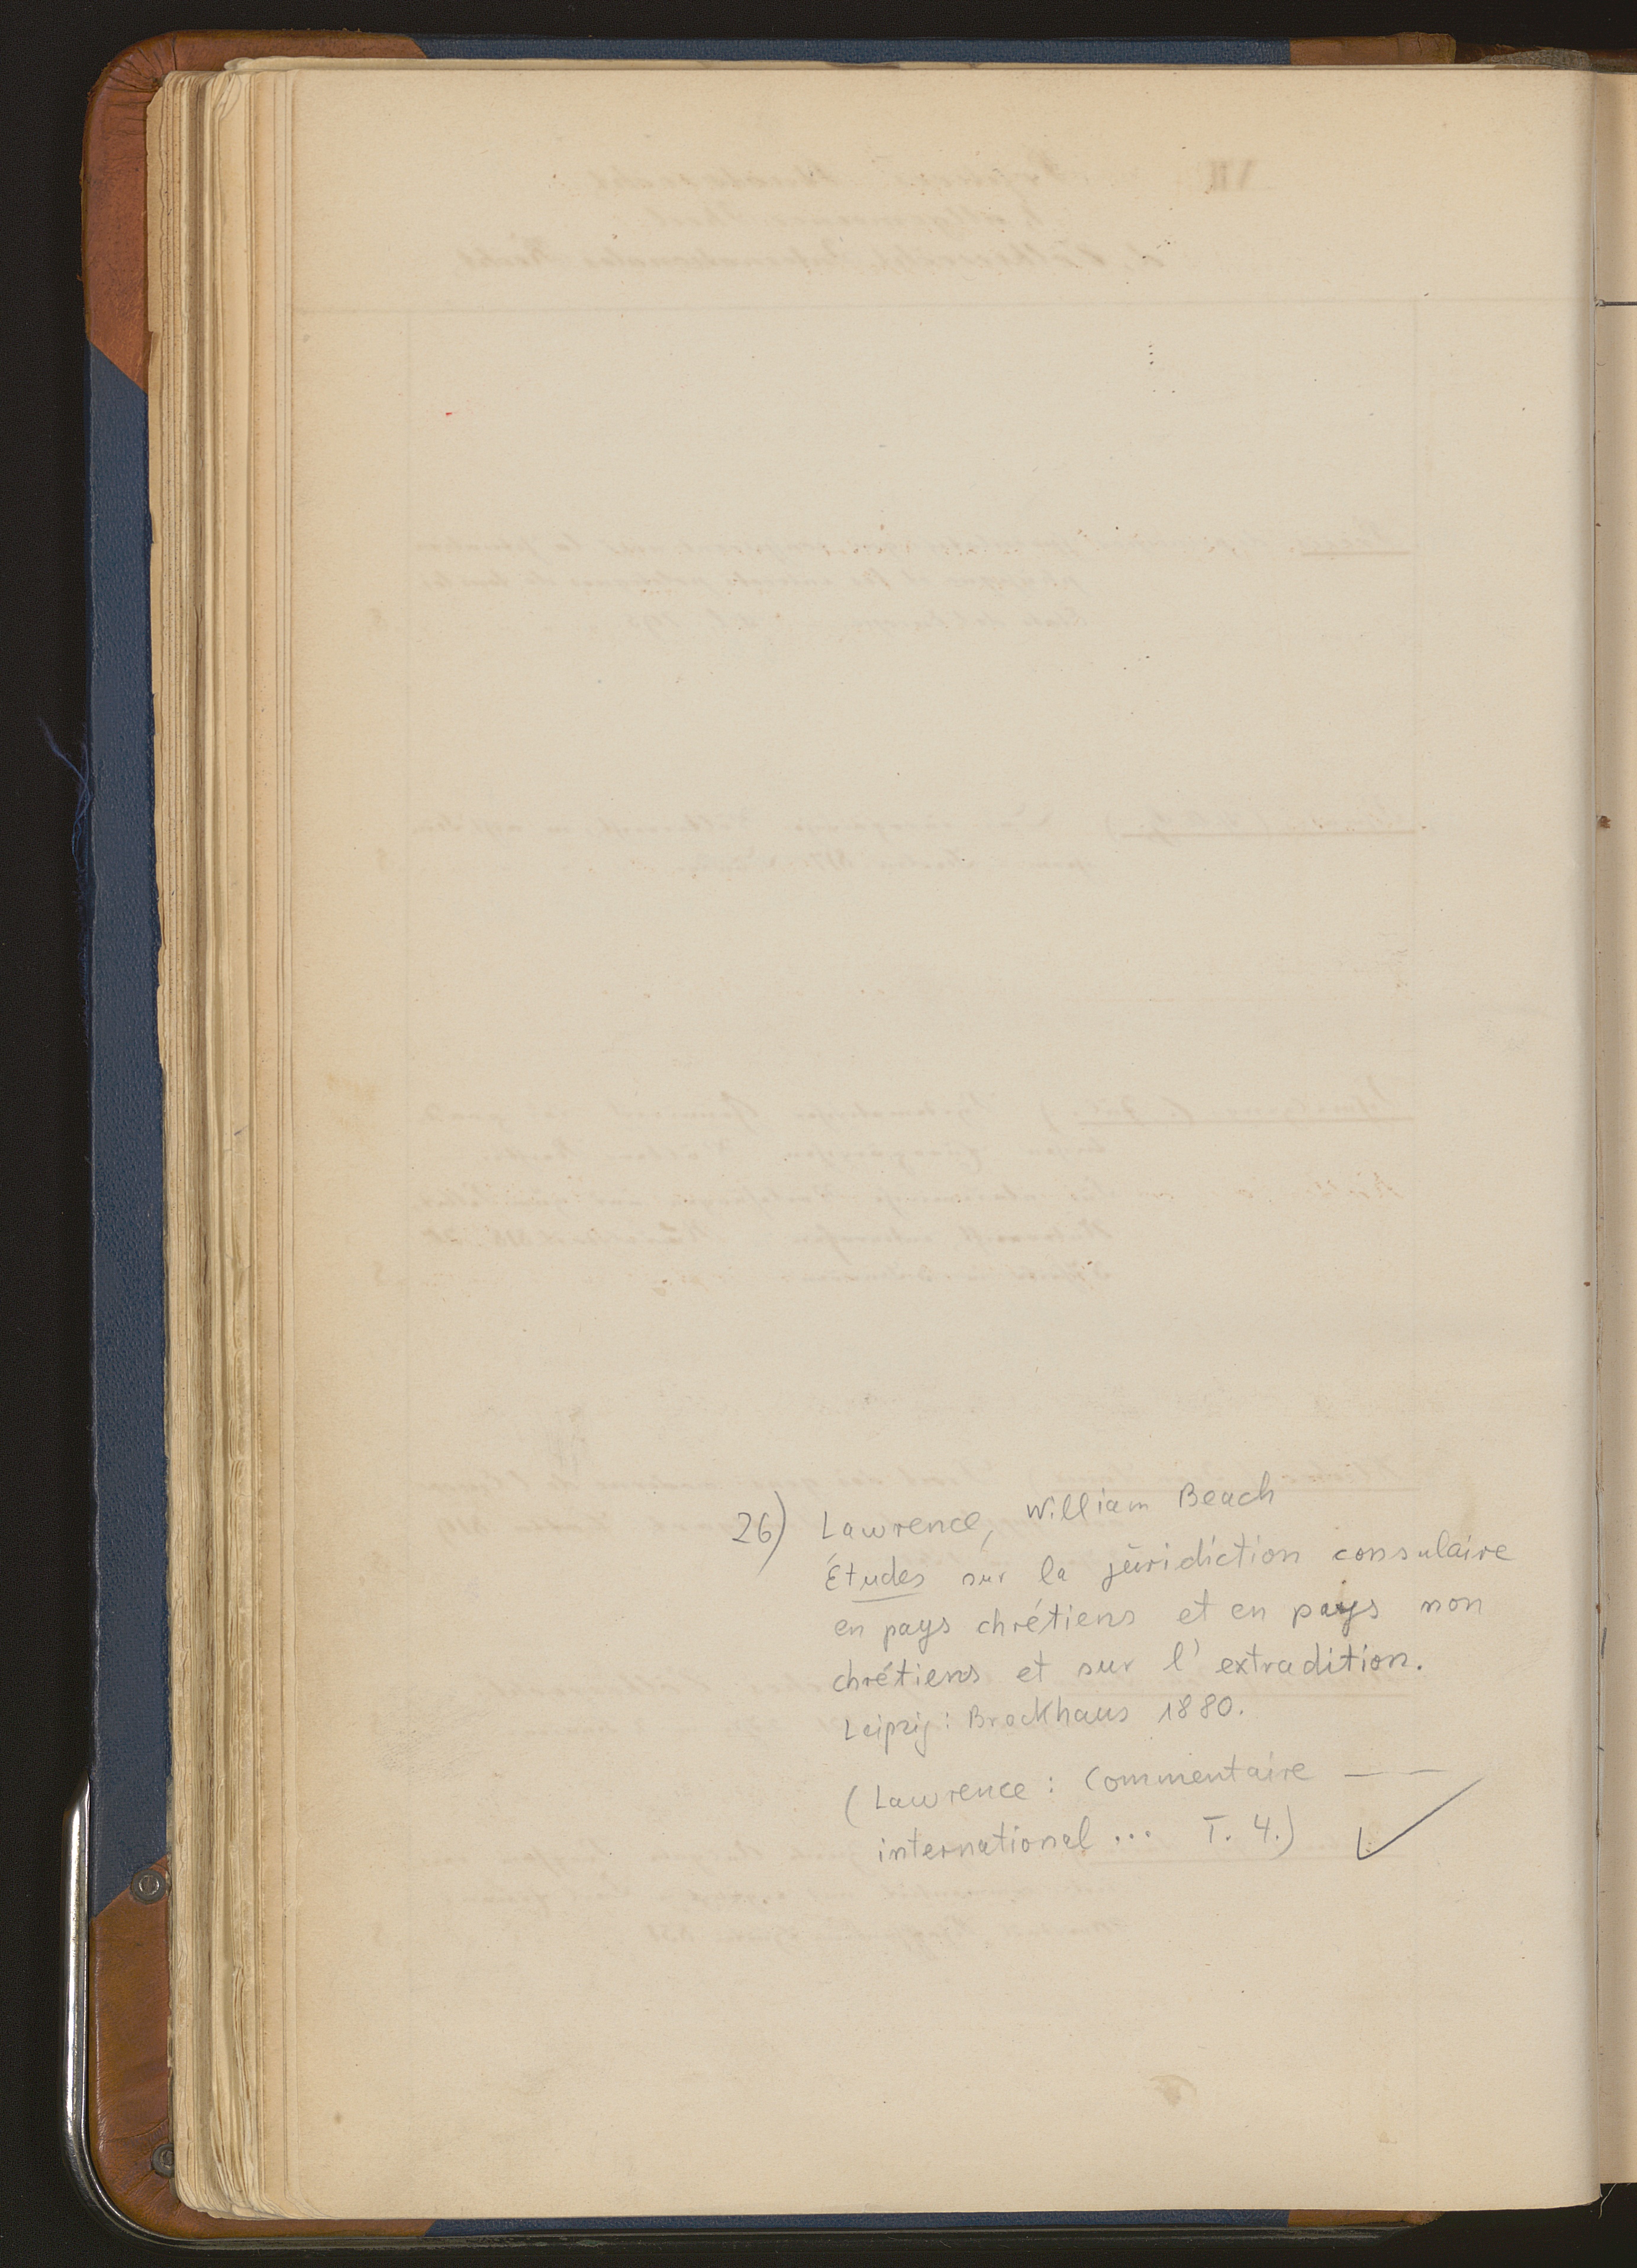 26) Lawrence, William Beach
Études sur la jŭridiction consulaire
en pays chrétiens et en pays non
chrétiens et sur l'extradition.
Leipzig: Brockhaus 1880.
(Lawrence: Commentaire — —
international ... T. 4.) ✓